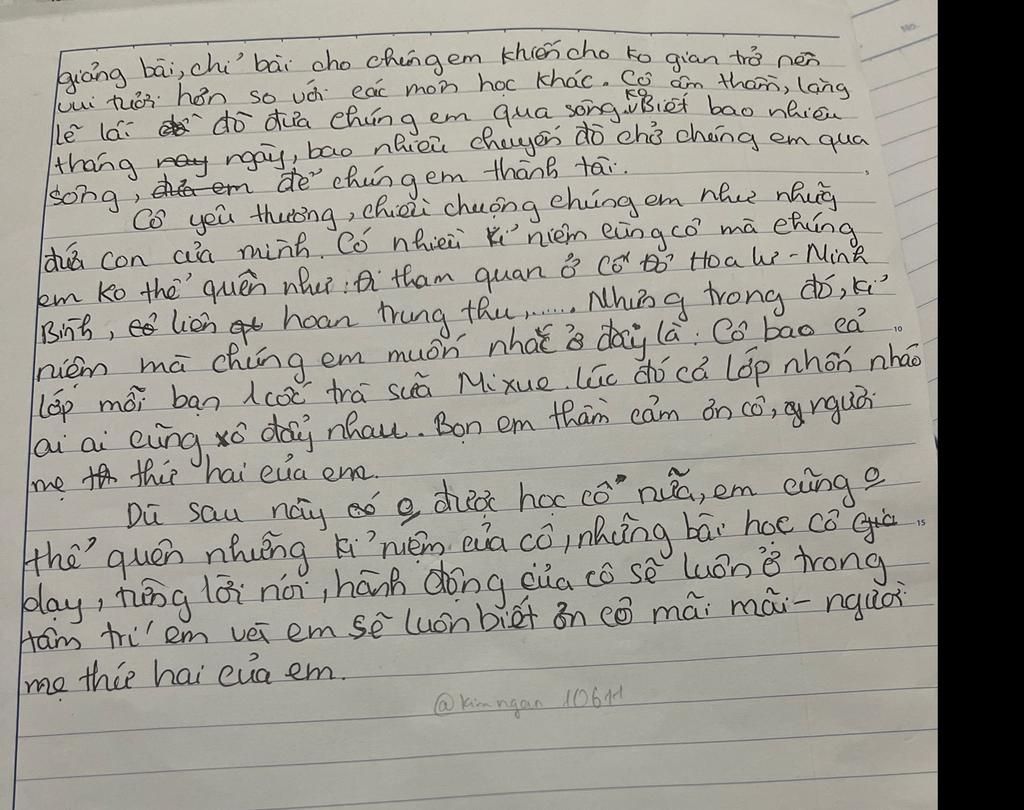 giảng bài, chỉ bài cho chúng em khiến cho ko gian trở nên
vui tươi hơn so với các môn học khác. Cô âm thầm, lặng
lẽ lái đò đưa chúng em qua sông. Ko Biết bao nhiêu
tháng nay ngày, bao nhiêu chuyến đò chở chúng em qua
sông, đưa em để chúng em thành tài.
Cô yêu thương, chiều chuộng chúng em như những
đứa con của mình. Có nhiều kỉ niệm cùng cô mà chúng
em ko thể quên như: Đi tham quan ở Cố Đô Hoa Lư - Ninh
Bình, cổ liên hoan trung thu,...... Nhưng trong đó, kỉ
niệm mà chúng em muốn nhắc ở đây là: Cô bao cả
lớp mỗi bạn 1 cốc trà sữa Mixue. lúc đó cả lớp nhốn nháo
ai ai cũng xô đẩy nhau. Bọn em thầm cảm ơn cô, người
mẹ th thứ hai của em.
Dù sau này có o được học cô nữa, em cũng o
thể quên những kỉ niệm của cô, những bài học cô
dạy, từng lời nói, hành động của cô sẽ luôn ở trong
tâm trí em và em sẽ luôn biết ơn cô mãi mãi - người
mẹ thứ hai của em.
@kimngan 10611
No.
10
15